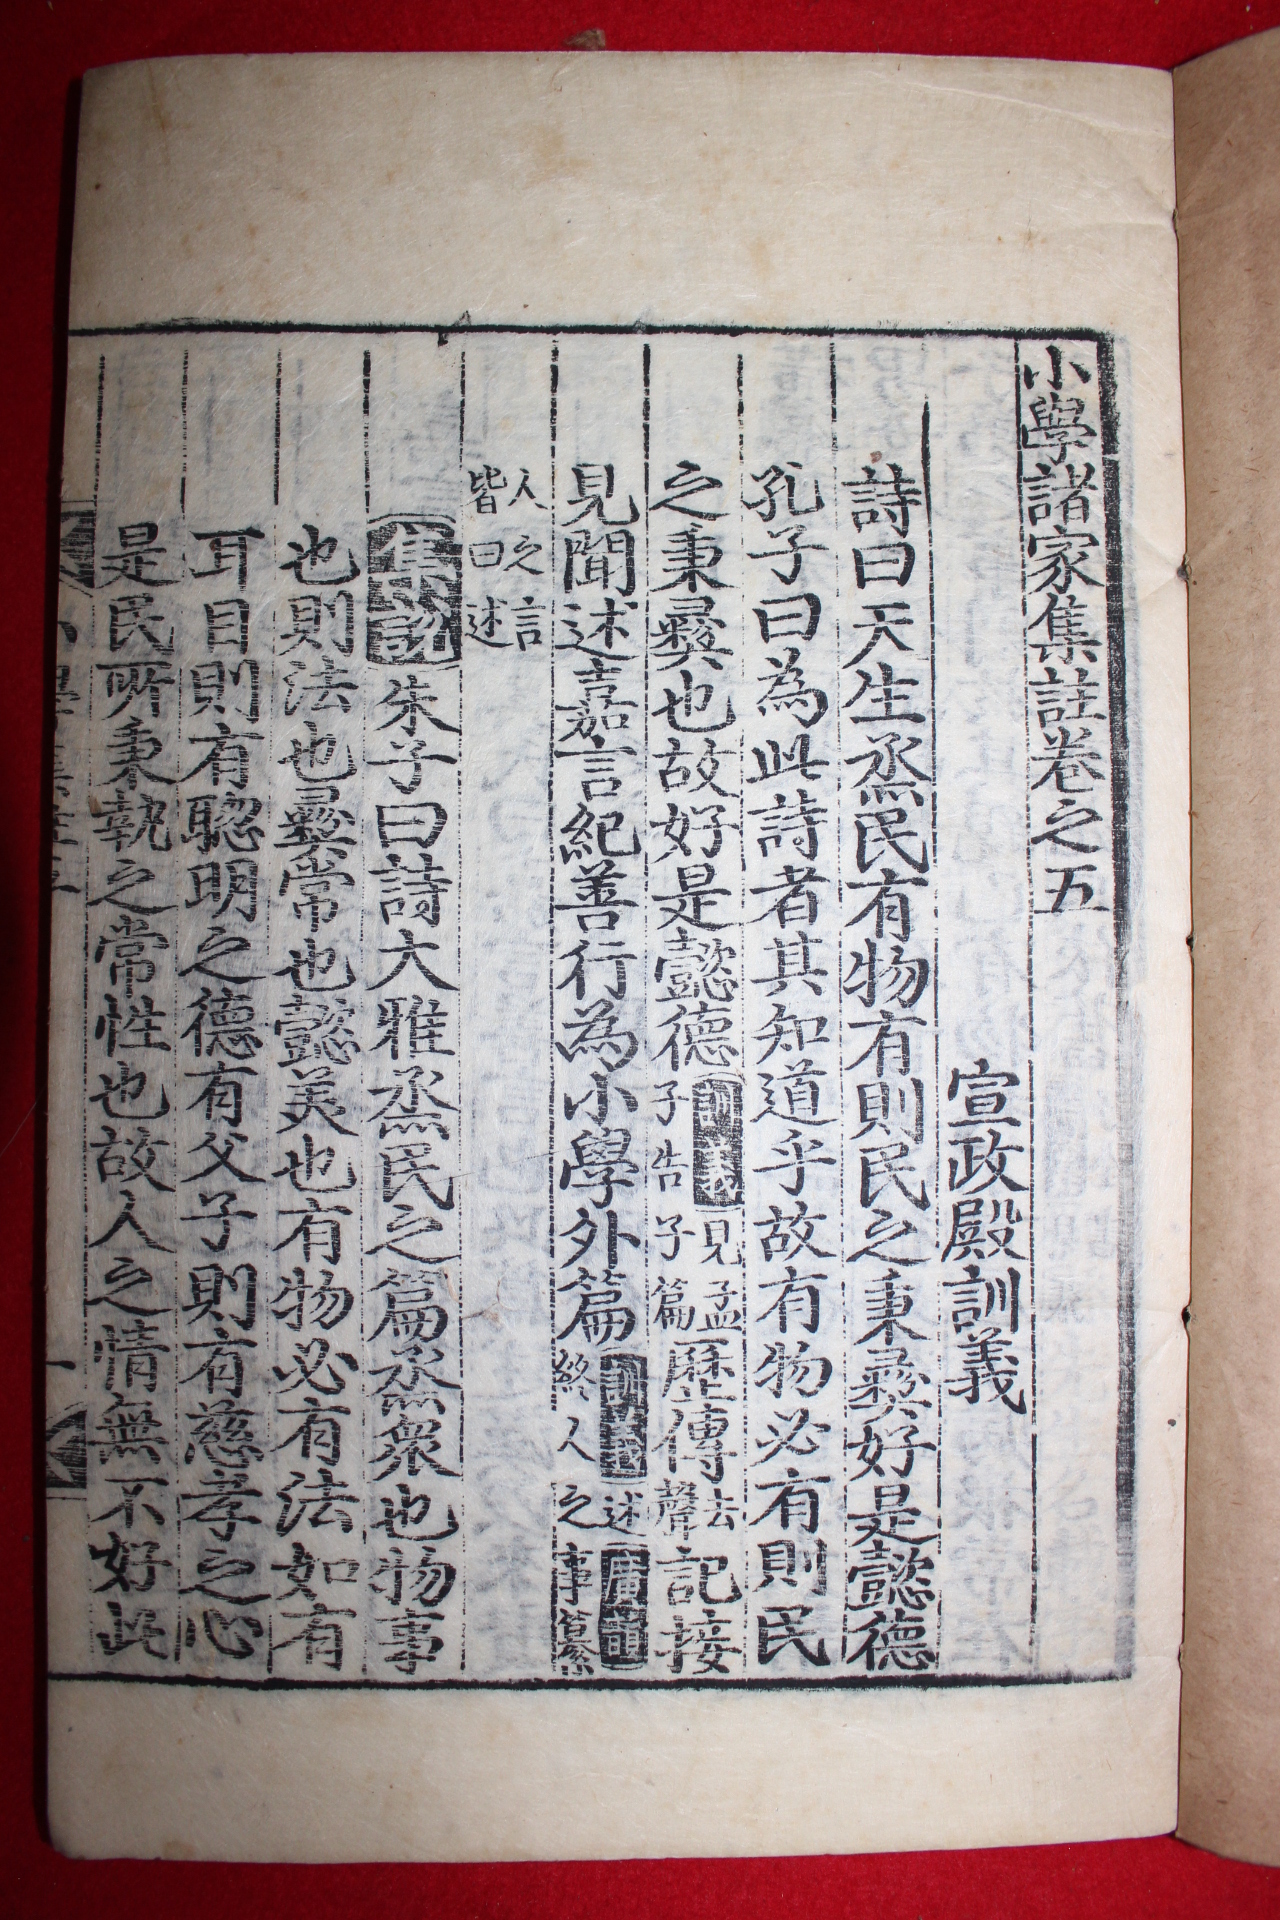 小學諸家集註卷之五
宣政殿訓義
詩曰天生烝民有物有則民之秉彝好是懿德
孔子曰為此詩者其知道乎故有物必有則民
之秉彝也故好是懿德訓義見孟子告子篇歷傳去聲記接
見聞述嘉言紀善行為小學外篇訓義述廣韻終人之事纂
人之言皆曰述
集說朱子曰詩大雅烝民之篇烝衆也物事
也則法也彝常也懿美也有物必有法如有
耳目則有聰明之德有父子則有慈孝之心
是民所秉執之常性也故人之情無不好此